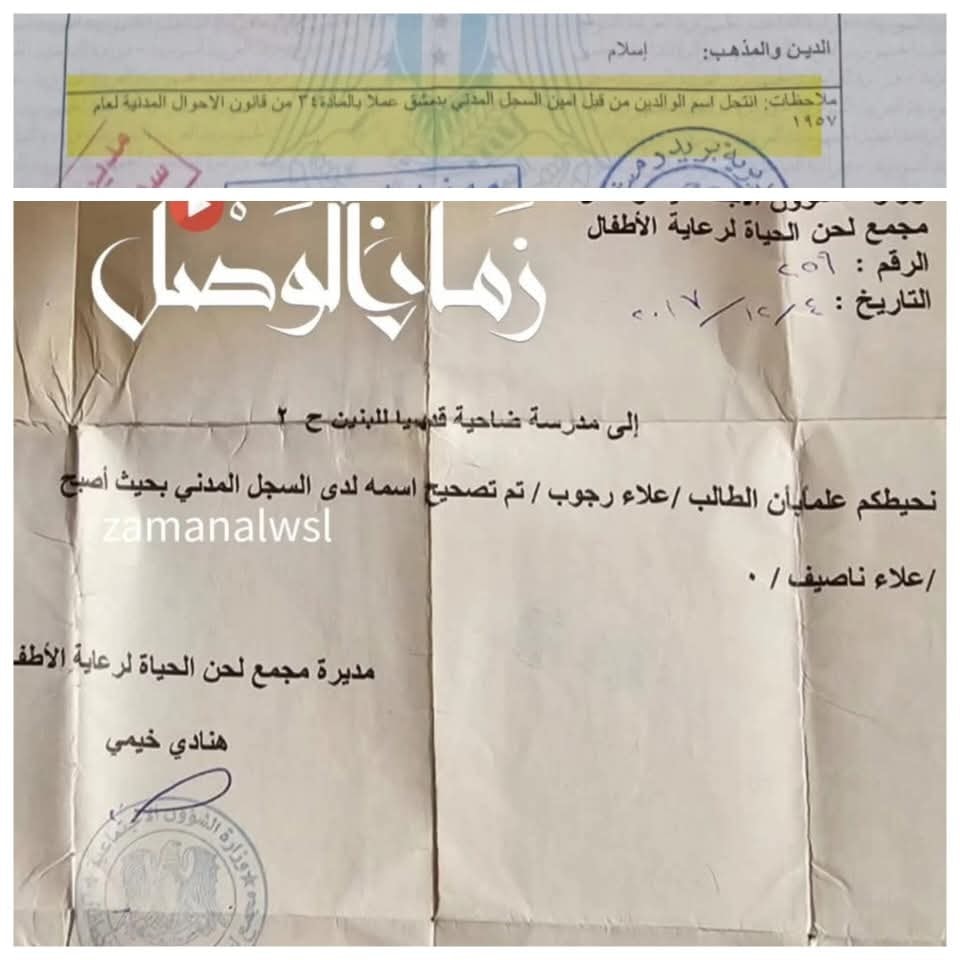 الدين والمذهب: إسلام
ملاحظات: انتحل اسم الوالدين من قبل امين السجل المدني بدمشق عملا بالمادة ٣٤ من قانون الاحوال المدنية لعام
١٩٥٧
مديرية بريد دمشق
زمان الوصل
مجمع لحن الحياة لرعاية الأطفال
الرقم : ٢٥٦
التاريخ : ٤ / ١٢ / ٢٠١٧
إلى مدرسة ضاحية قدسيا للبنين ح ٢
نحيطكم علماً بأن الطالب /علاء رجوب / تم تصحيح اسمه لدى السجل المدني بحيث أصبح
zamanalwsl
/علاء ناصيف / ٠
مديرة مجمع لحن الحياة لرعاية الأطف
هنادي خيمي
وزارة الشؤون الاجتماعية